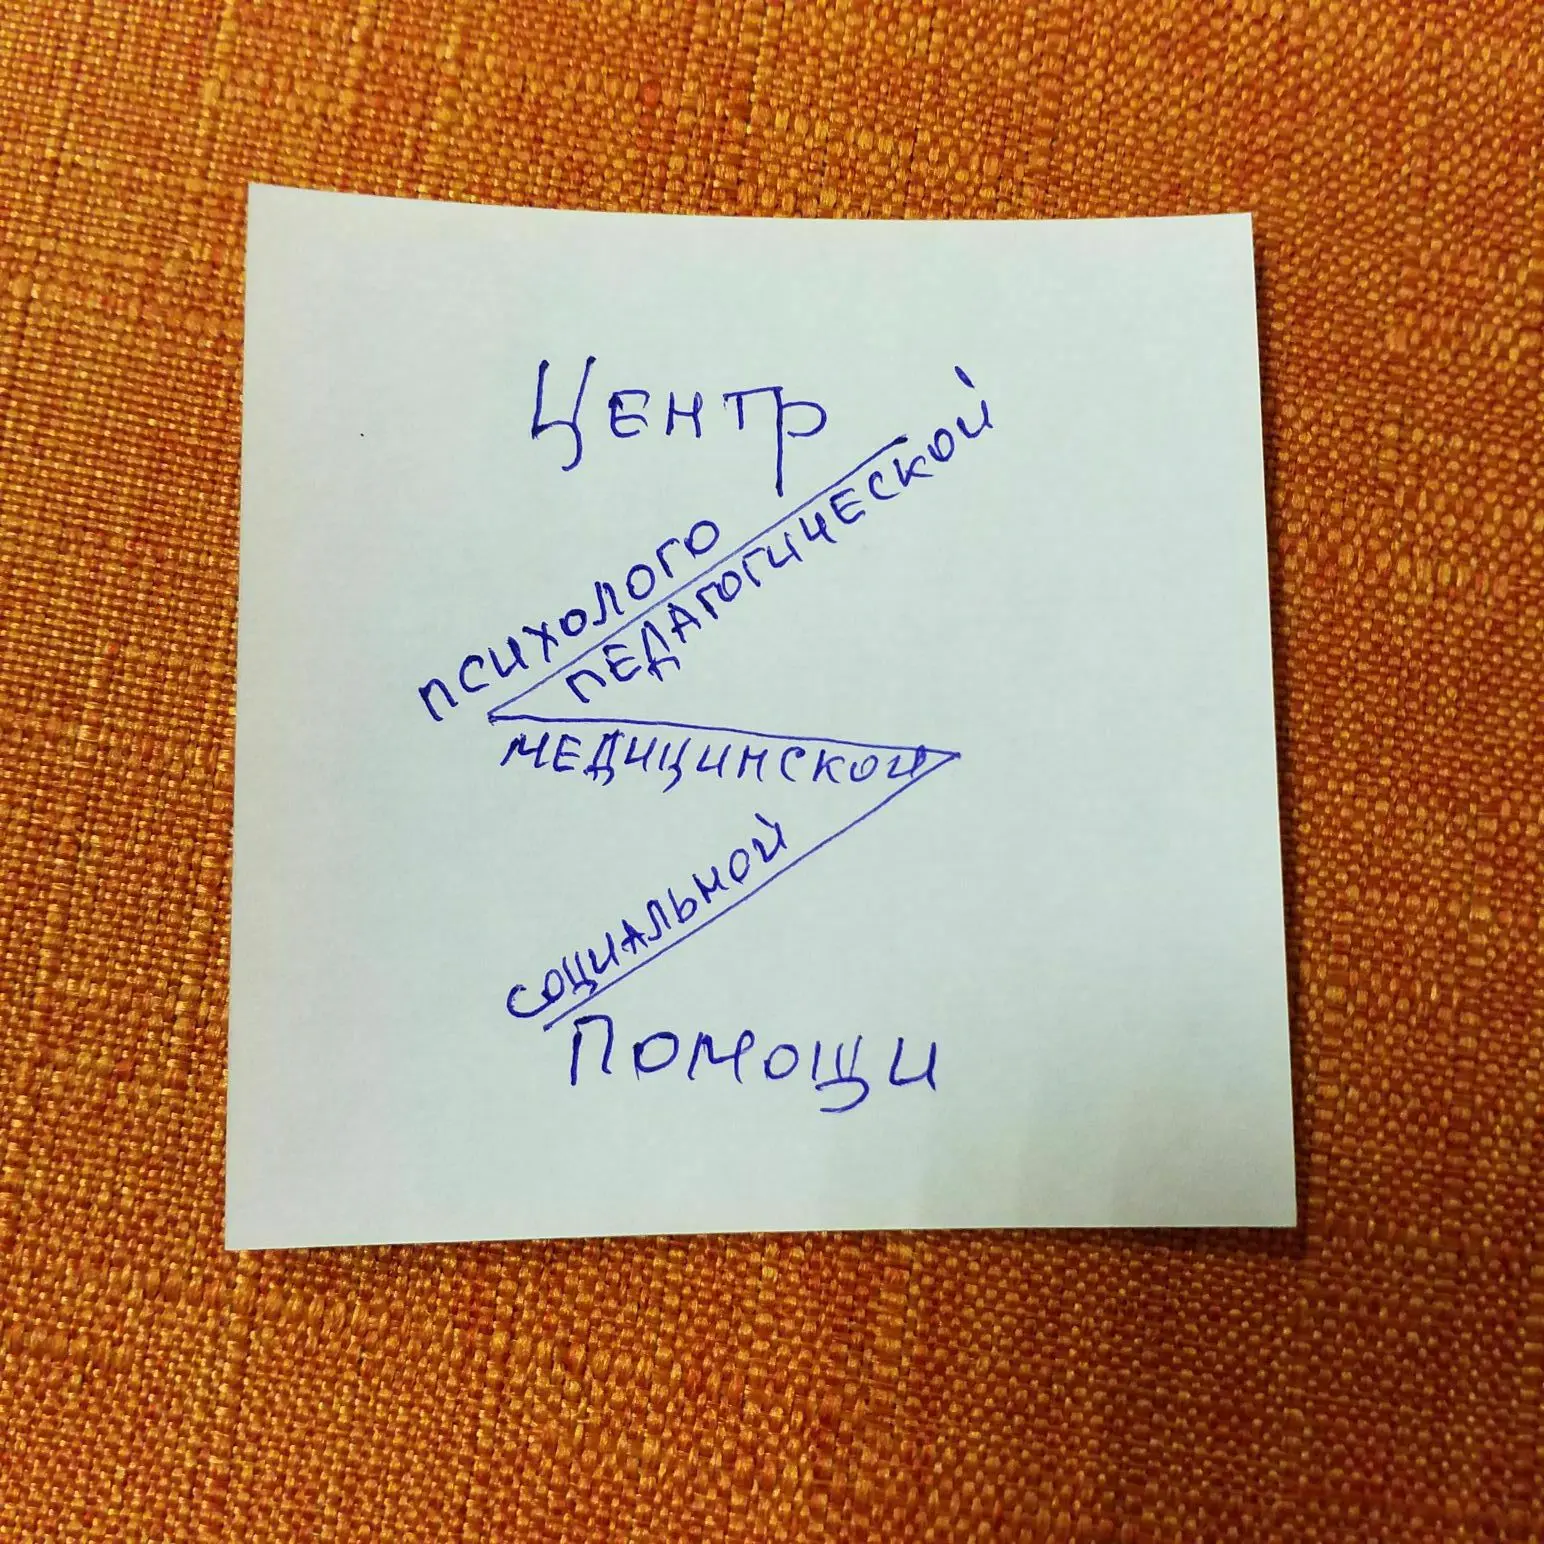 Центр
психолого
педагогической
медицинской
социальной
Помощи